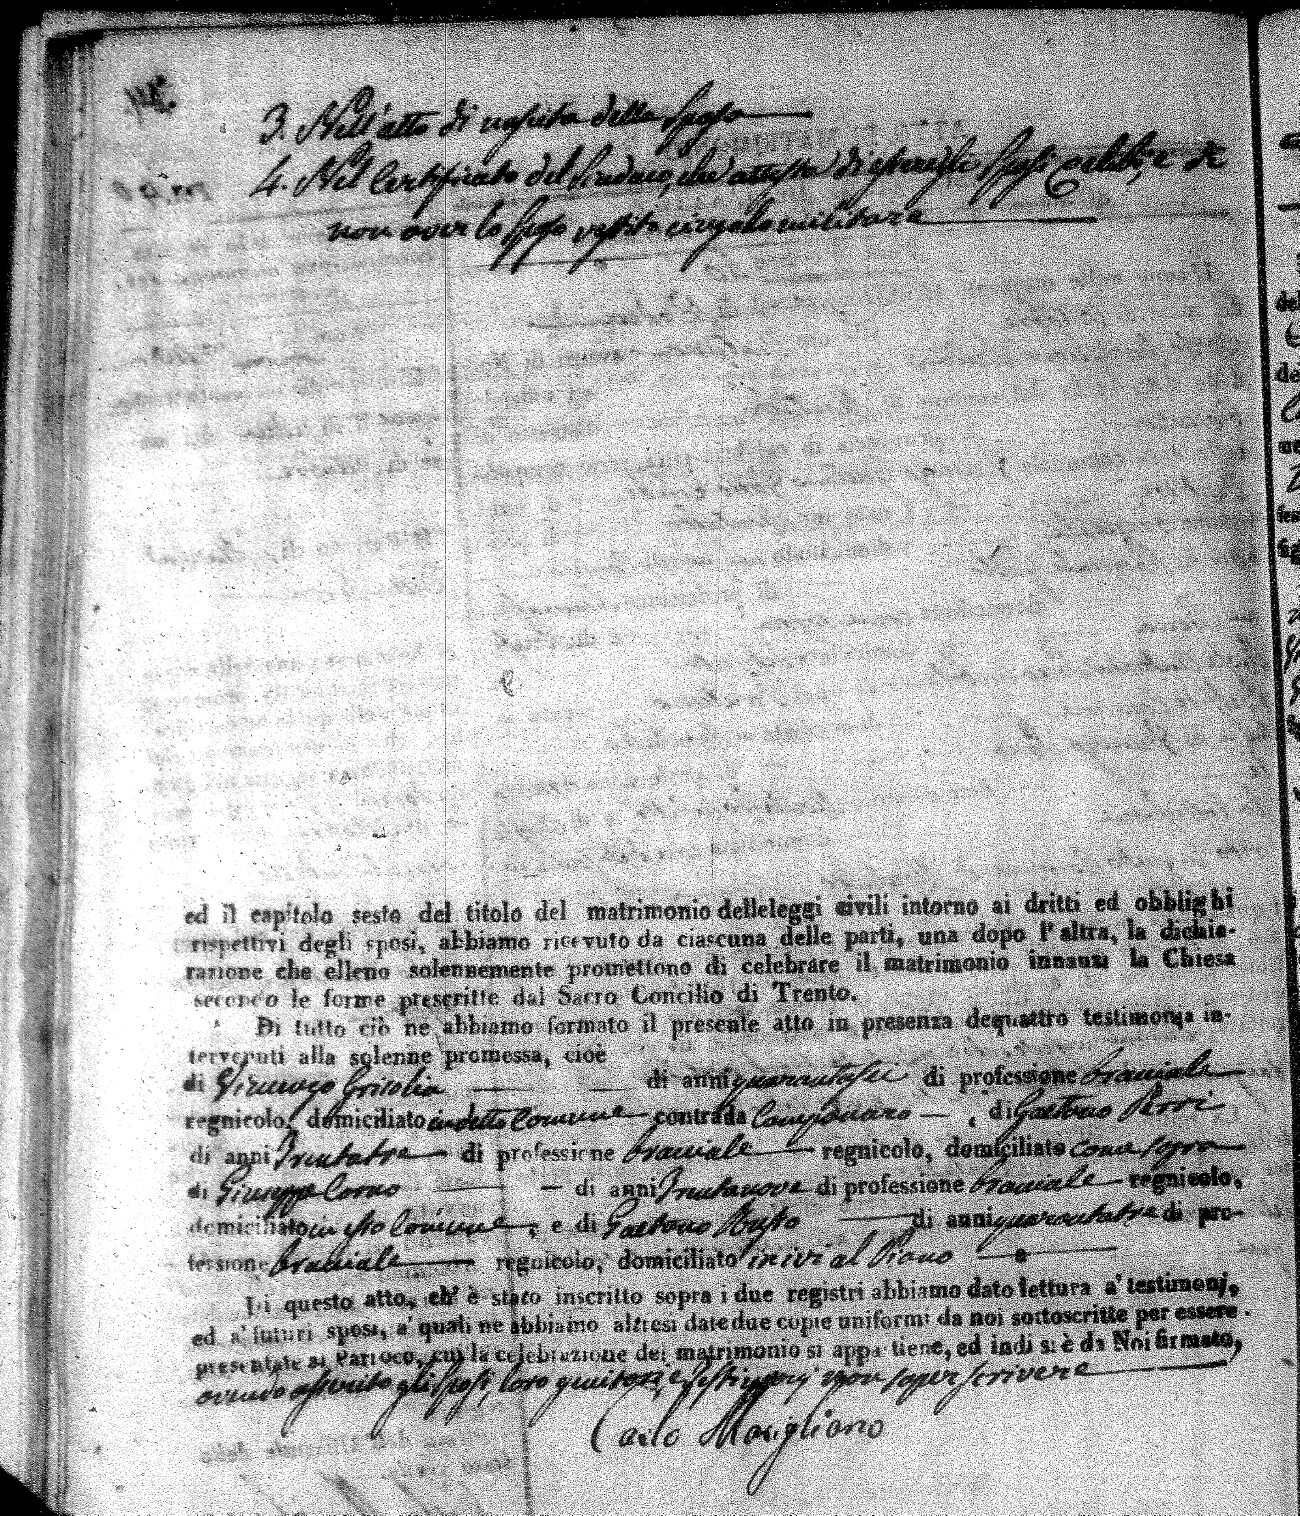 3. Nell'atto di nascita della sposa
4. Nel Certificato del Sindaco, che attesta di essere gli sposi celibi, e di
non aver lo sposo vestito cingolo militare
ed il capitolo sesto del titolo del matrimonio delleleggi civili intorno ai dritti ed obblighi
rispettivi degli sposi, abbiamo ricevuto da ciascuna delle parti, una dopo l'altra, la dichia-
razione che elleno solennemente promettono di celebrare il matrimonio innanzi la Chiesa
secondo le forme prescritte dal Sacro Concilio di Trento.
Di tutto ciò ne abbiamo formato il presente atto in presenza dequattro testimonja in-
tervenuti alla solenne promessa, cioè
di Grisolia di anni quarantasei di professione bracciale
regnicolo, domiciliato in detto Comune contrada , di Gaetano Perri
di anni trentatre di professione bracciale regnicolo, domiciliato come sopra
di Giuseppe di anni trentanove di professione bracciale regnicolo,
domiciliato in esso Comune, e di Gaetano Russo di anni quarantatre di pro-
fessione bracciale regnicolo, domiciliato in ivi al Piano
Di questo atto, ch' è stato inscritto sopra i due registri abbiamo dato lettura a' testimonj,
ed a' futuri sposi, a' quali ne abbiamo altresì datedue copie uniformi da noi sottoscritte per essere
presentate al Parroco, cui la celebrazione del matrimonio si appartiene, ed indi si è da Noi firmato,
avendo asserito gli sposi, loro genitori, e testimonj non saper scrivere
Carlo Marigliano